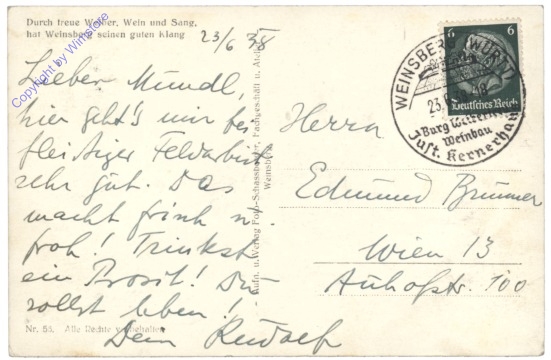 Durch treue Weiber, Wein und Sang,
hat Weinsberg seinen guten Klang
23/6 38
Lieber Mundl,
hier geht's mir bei
fleißiger Feldarbeit
sehr gut. Das
macht frisch u.
froh! Trinkst
ein Prosit! Du
sollst leben!
Dein Rudolf
Nr. 53. Alle Rechte vorbehalten
Aufn. u. Verlag Foto-Schassberger, Fachgeschäft u. Atel.
Weinsberg
6 6
Deutsches Reich
WEINSBERG (WÜRTT)
23.
Burg Weibertreu
Weinbau
Just. Kernerhaus
Herrn
Edmund Brunner
Wien 13
Auhofstr. 100
Copyright by Winstore